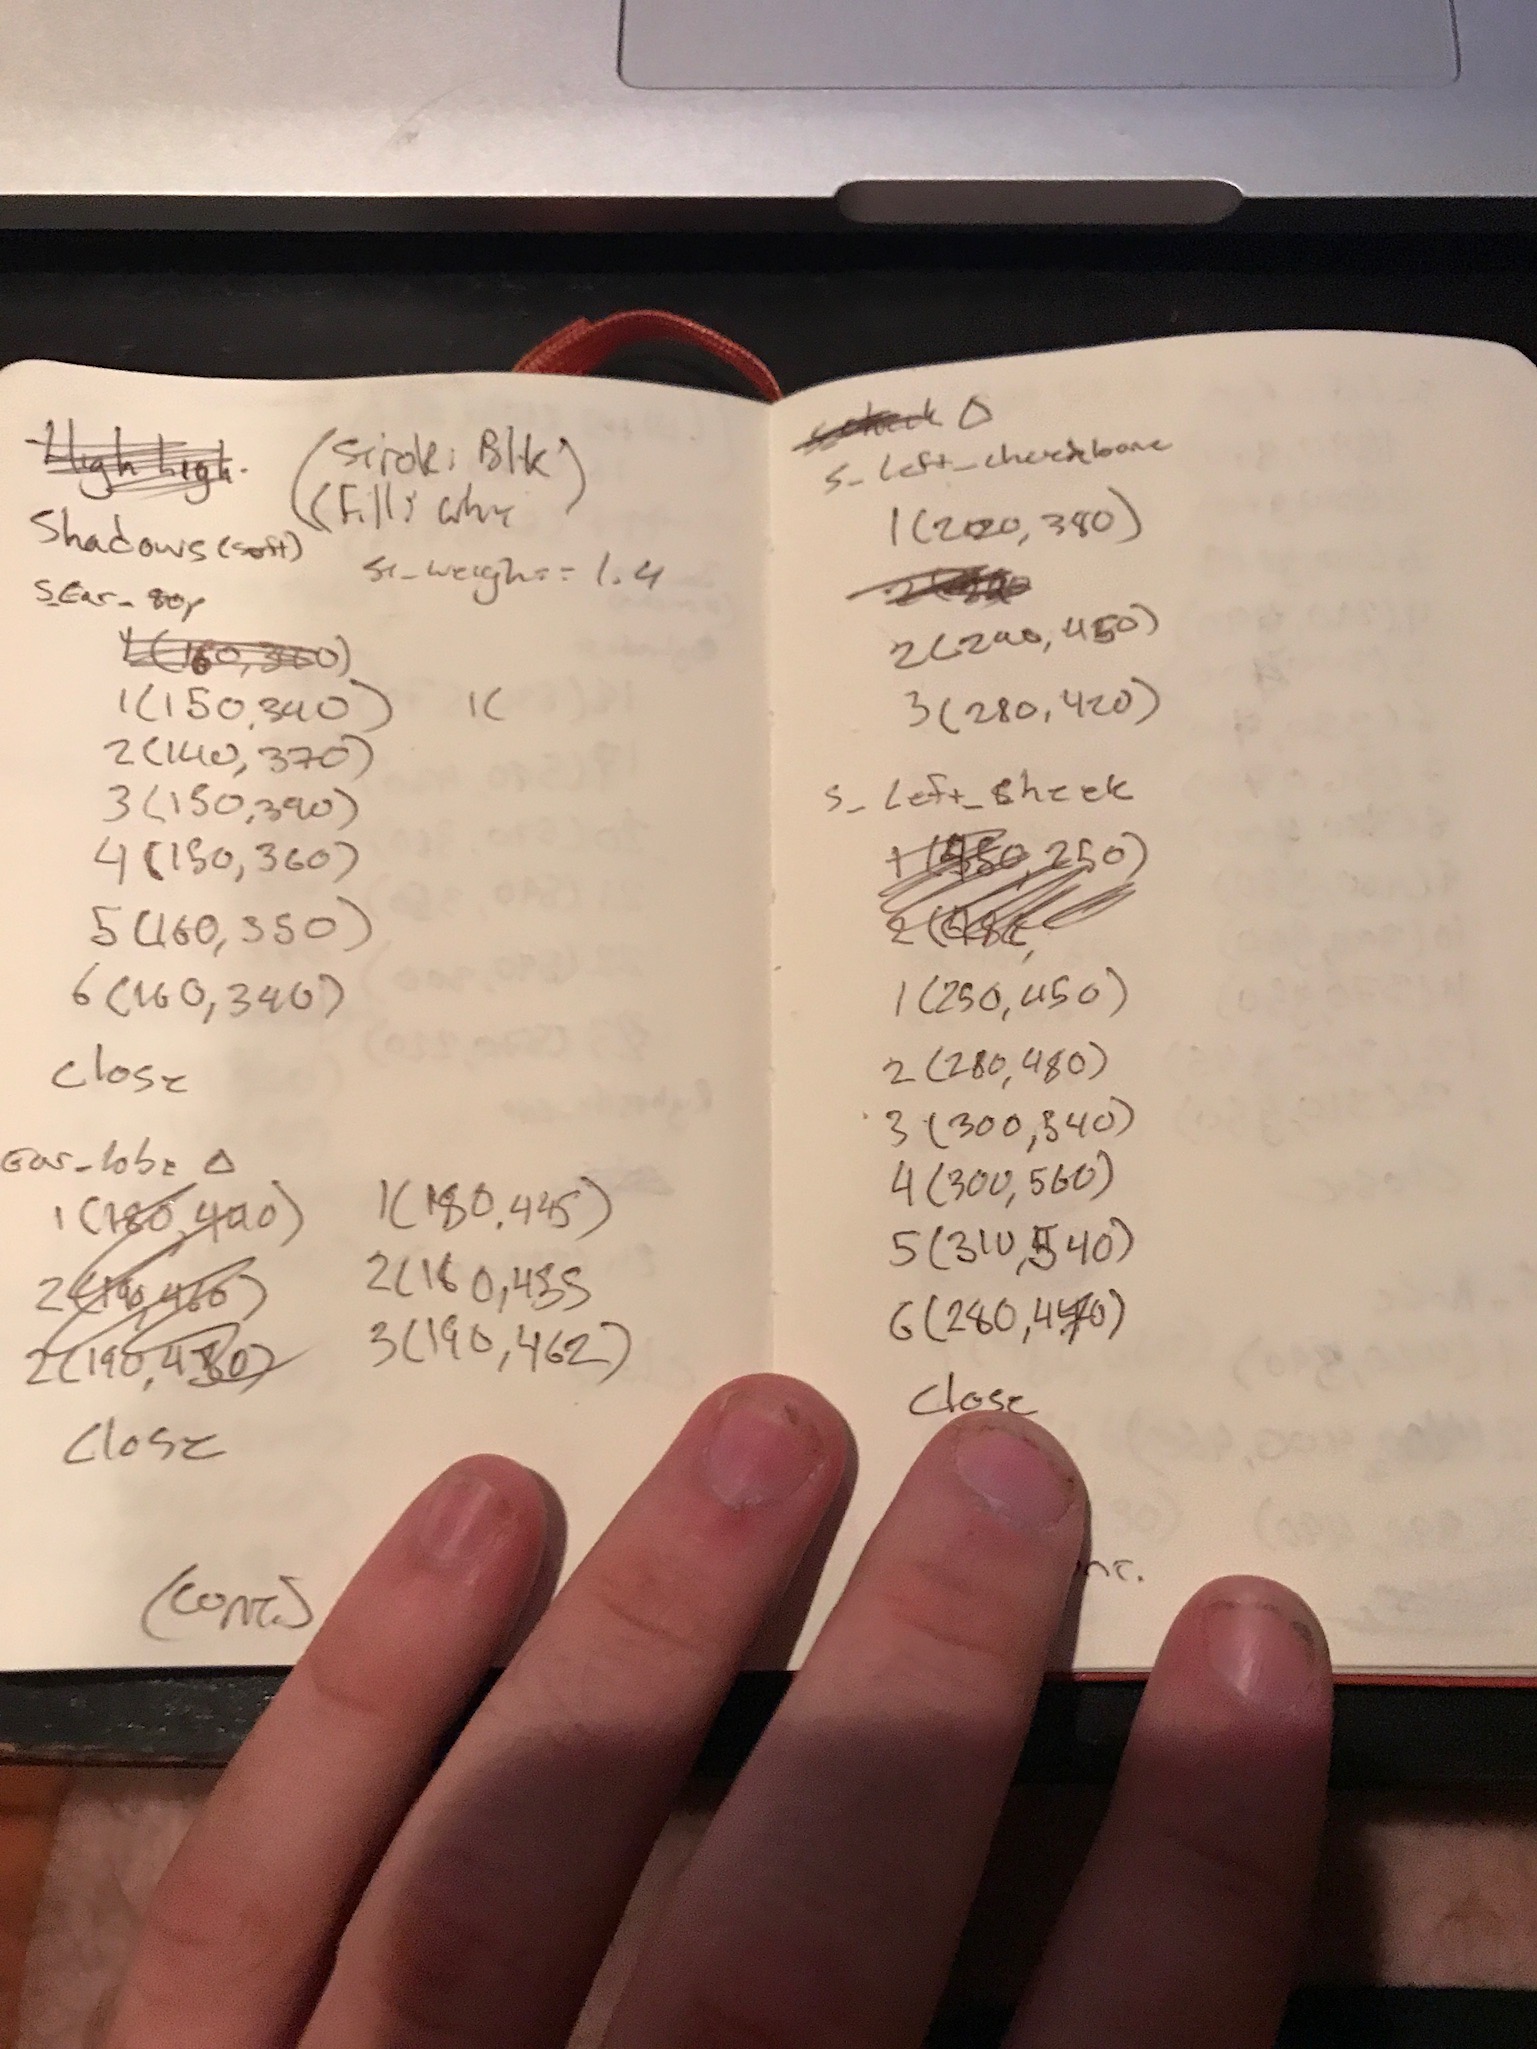 High high.
(Strok: Blk)
(Fill: Whi
Shadows (soft)
St_weight == 1.4
S_Ear_top
1(160,360)
1(150,340) 1(
2(140,370)
3(150,390)
4(150,360)
5(160,350)
6(160,340)
Close
Ear_lobe Δ
1(180,440) 1(180,445)
2(190,460) 2(180,455
2(190,450) 3(190,462)
Close
(cont.)
S_left_cheekbone
1(220,380)
2(240,450)
3(280,420)
S_left_cheek
1(450,250)
1(250,450)
2(280,480)
3(300,540)
4(300,560)
5(310,540)
6(280,470)
Close